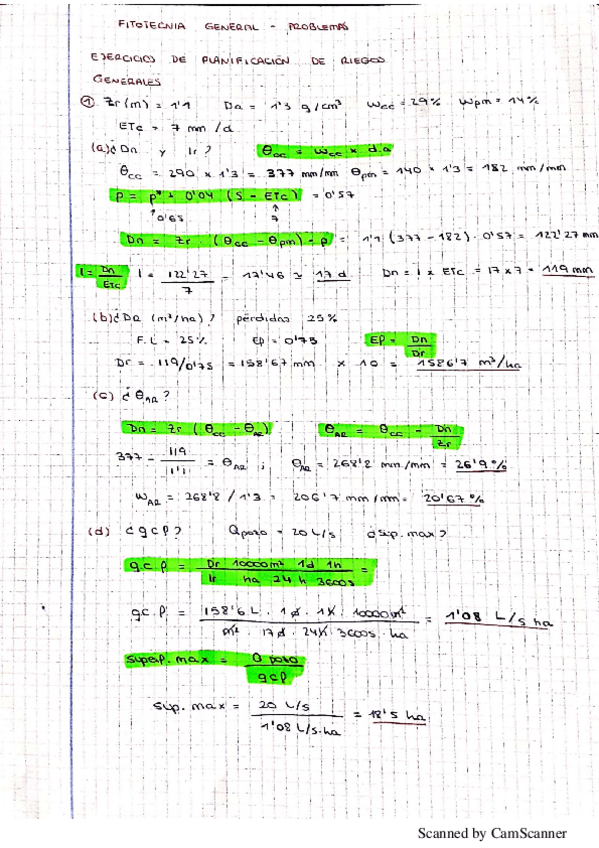 FITOTECNIA GENERAL - PROBLEMAS
EJERCICIOS DE PLANIFICACIÓN DE RIEGOS
GENERALES
① Zr (m) = 1'1 Da = 1'3 g/cm³ Wcc = 29% Wpm = 14%
ETc = 7 mm/d
(a) ¿Dn y Ir? θcc = Wcc x d.a
θcc = 290 x 1'3 = 377 mm/mm θpm = 140 x 1'3 = 182 mm/mm
P = P* + 0'04 (5 - ETc) = 0'57
↑0'65 ↑7
Dn = Zr · (θcc - θpm) · P = 1'1 (377 - 182) · 0'57 = 122'27 mm
I = Dn/ETc I = 122'27/7 = 17'46 ≃ 17 d Dn = I x ETc = 17 x 7 = 119 mm
(b) ¿DR (m³/ha)? pérdidas 25%
F.L = 25% EP = 0'75 EP = Dn/Dr
Dr = 119/0'75 = 158'67 mm x 10 = 1586'7 m³/ha
(c) ¿θAR?
Dn = Zr (θcc - θAR) θAR = θcc - Dn/Zr
377 - 119/1'1 = θAR ; θAR = 268'8 mm/mm = 26'9%
WAR = 268'8 / 1'3 = 206'7 mm/mm = 20'67%
(d) ¿gcp? Qpozo = 20 L/s ¿sup. max?
g.c.p = Dr 10000m² 1d 1h / Ir ha 24h 3600s =
gc.p = 158'6 L · 1d · 1h · 10000m² / m² 17d · 24h · 3600s · ha = 1'08 L/s ha
superf. max = Q pozo / gcp
sup. max = 20 L/s / 1'08 L/s·ha = 18'5 ha
Scanned by CamScanner